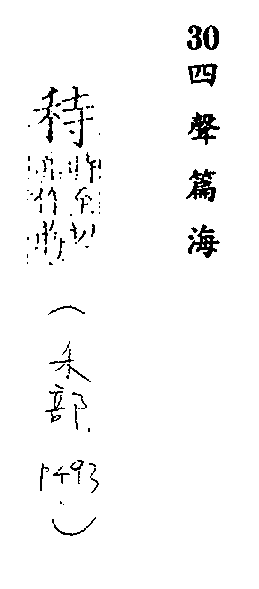 30四聲篇海
秲
(禾部.
P493.)